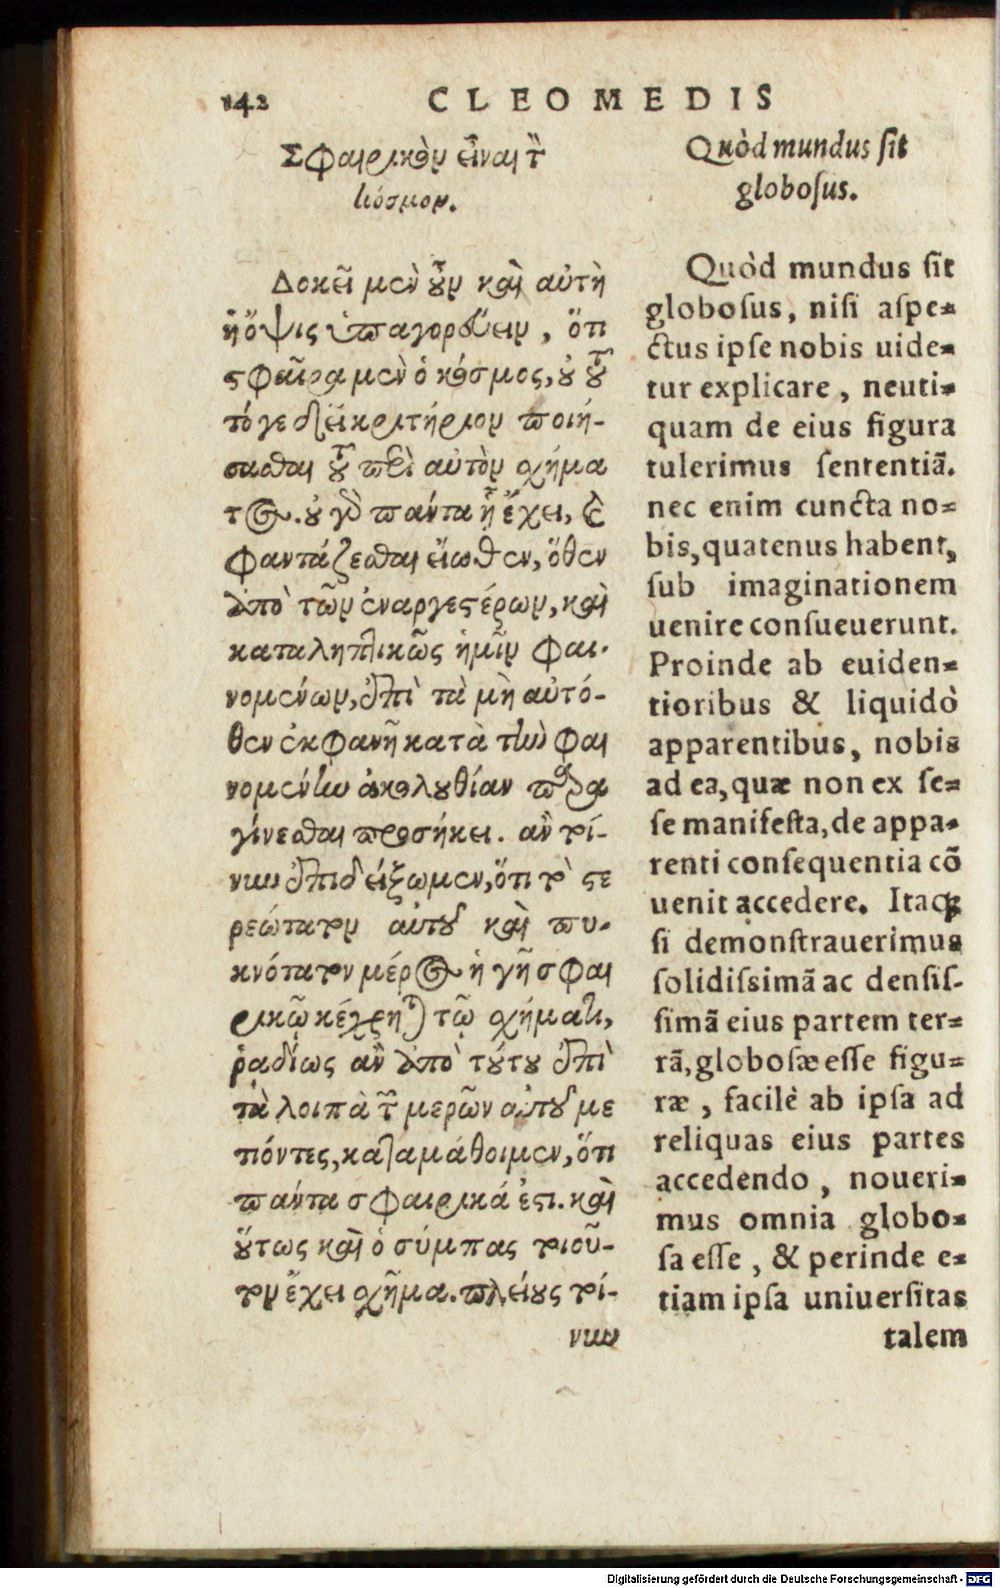 142 CLEOMEDIS
Σφαιρικὸν εἶναι τ̃
κόσμον.
Δοκεῖ μὲν οὖν καὶ αὐτὴ
ἡ ὄψις ὑπαγορεύειν, ὅτι
σφαῖρα μὲν ὁ κόσμος, οὐ τοῦ
τό γε δεῖ κριτήριον ποιή-
σασθαι τοῦ περὶ αὐτὸν σχήμα
τος. οὐ γὰρ πάντα ᾗ ἔχει,
φαντάζεσθαι εἴωθεν, ὅθεν
ἀπὸ τῶν ἐναργεστέρων, καὶ
καταληπτικῶς ἡμῖν φαι-
νομένων, ἐπὶ τὰ μὴ αὐτό-
θεν ἐκφανῆ κατὰ τὴν φαι
νομένην ἀκολουθίαν παρα
γίνεσθαι προσήκει. ἂν τοί-
νυν ἐπιδείξωμεν, ὅτι τὸ στε
ρεώτατον αὐτοῦ καὶ πυ-
κνότατον μέρος ἡ γῆ σφαι
ρικῷ κέχρηται τῷ σχήματι,
ῥαδίως ἂν ἀπὸ τούτου ἐπὶ
τὰ λοιπὰ τῶν μερῶν αὐτοῦ με
τιόντες, καταμάθοιμεν, ὅτι
πάντα σφαιρικά ἐστι. καὶ
οὕτως καὶ ὁ σύμπας τοιοῦ-
τον ἔχει σχῆμα. πλείους τοί-
νυν
Quòd mundus ſit
globoſus.
Quòd mundus ſit
globoſus, niſi aſpe=
ctus ipſe nobis uide=
tur explicare, neuti=
quam de eius figura
tulerimus ſententiã.
nec enim cuncta no=
bis, quatenus habent,
ſub imaginationem
uenire conſueuerunt.
Proinde ab euiden=
tioribus & liquidò
apparentibus, nobis
ad ea, quæ non ex ſe=
ſe manifeſta, de appa=
renti conſequentia cõ
uenit accedere. Itaq;
ſi demonſtrauerimus
ſolidiſsimã ac denſiſ-
ſimã eius partem ter=
rã, globoſæ eſſe figu=
ræ, facilè ab ipſa ad
reliquas eius partes
accedendo, noueri=
mus omnia globo=
ſa eſſe, & perinde e=
tiam ipſa uniuerſitas
talem
Digitalisierung gefördert durch die Deutsche Forschungsgemeinschaft - DFG